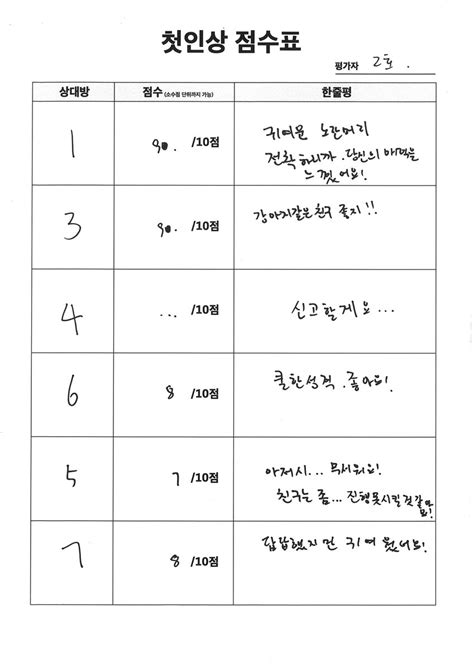 첫인상 점수표
평가자 2호.
상대방 점수 (소수점 단위까지 가능) 한줄평
1 9. /10점 귀여운 노란머리
전화하니까. 당신의 매력을
느꼈어요!
3 9. /10점 강아지같은 친구 좋지!!
4 ... /10점 신고할게요...
6 8 /10점 쿨한성격. 좋아요!
5 7 /10점 아저씨... 무서워요!
친구는 좀... 진행못시킬것같아
요!
7 8 /10점 답답했지만 귀여웠어요!